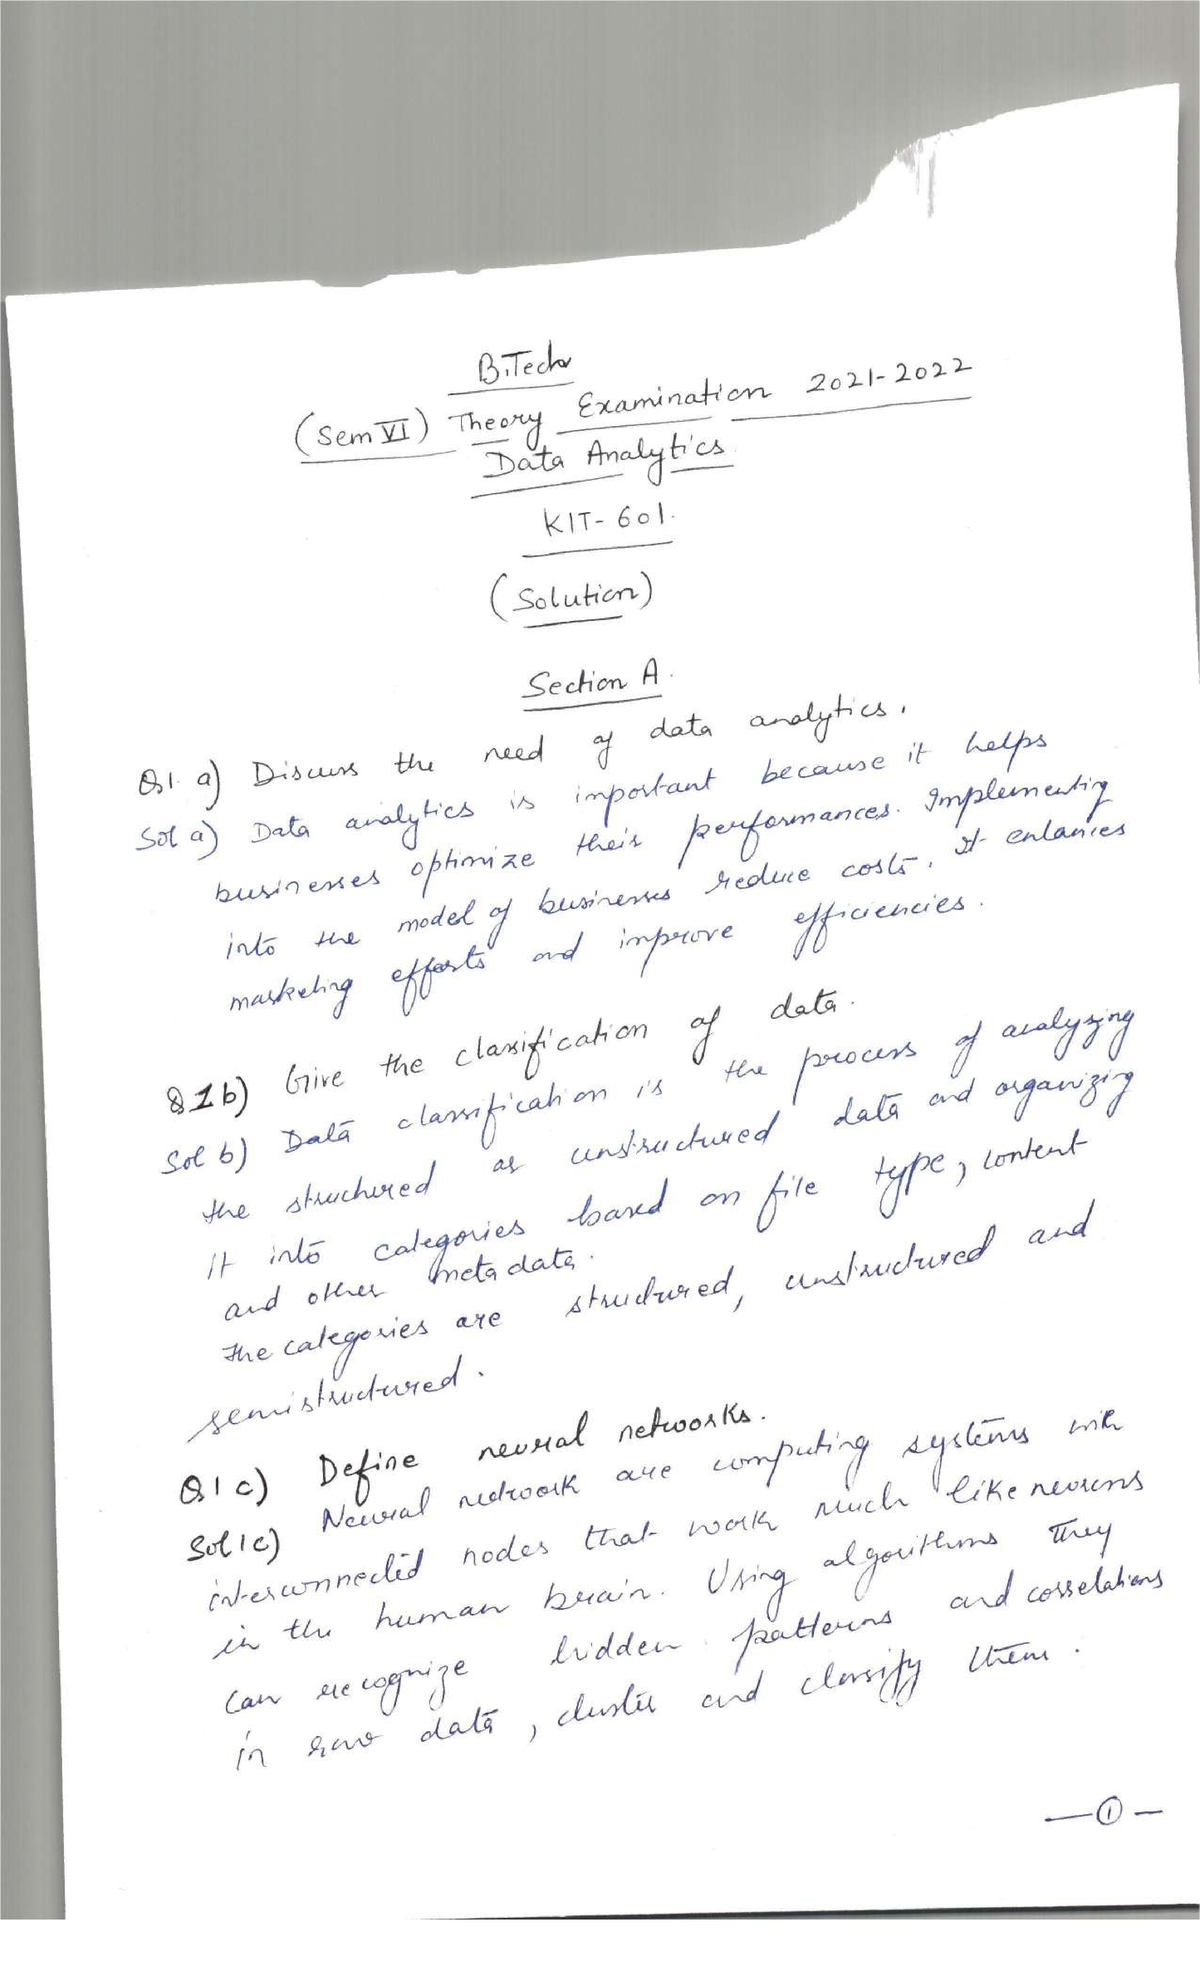 B.Tech
(Sem VI) Theory Examination 2021-2022
Data Analytics
KIT-601.
(Solution)
Section A.
Q1. a) Discuss the need of data analytics.
Sol a) Data analytics is important because it helps
businesses optimize their performances. Implementing
into the model of businesses reduce costs. It enhances
marketing efforts and improve efficiencies.
Q1b) Give the classification of data.
Sol b) Data classification is the process of analyzing
the structured or unstructured data and organizing
it into categories based on file type, content
and other metadata.
The categories are structured, unstructured and
semistructured.
Q1c) Define neural networks.
Sol1c) Neural network are computing systems with
interconnected nodes that work much like neurons
in the human brain. Using algorithms they
can recognize hidden patterns and correlations
in raw data, cluster and classify them.
—①—